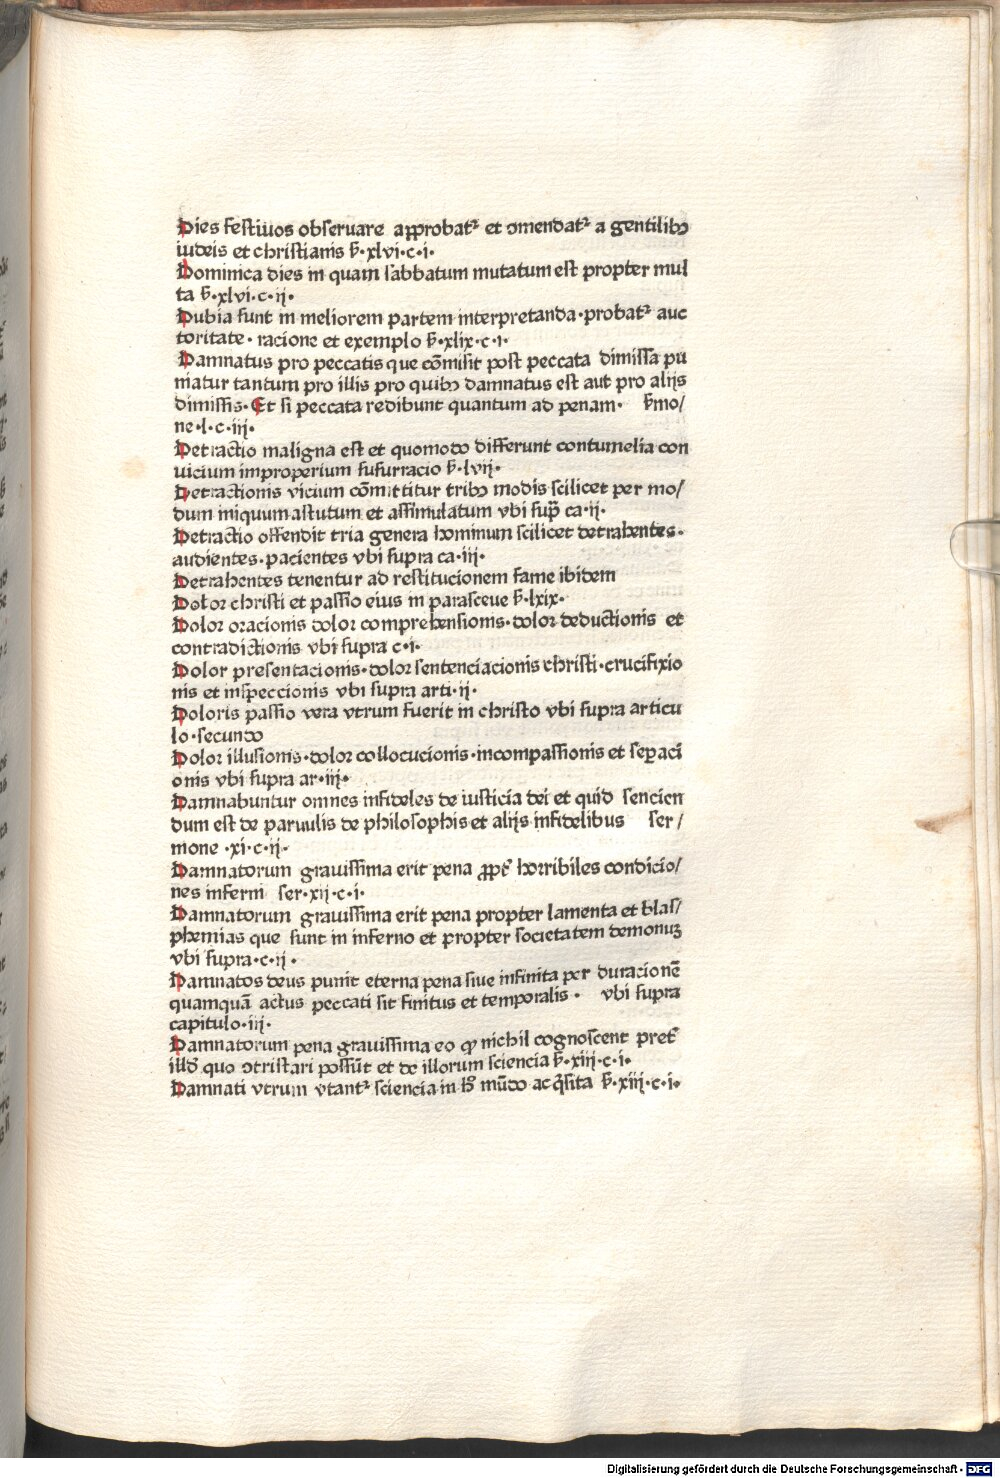 Dies festiuos obseruare approbatꝛ et ɔmendatꝛ a gentilibꝫ
iudeis et christianis ẜ·xlvi·c·i·
Dominica dies in quam sabbatum mutatum est propter mul
ta ẜ·xlvi·c·ij·
Dubia sunt in meliorem partem interpretanda·probatꝛ auc
toritate·racione et exemplo ẜ·xlix·c·i·
Damnatus pro peccatis que cõmisit post peccata dimissa pu
niatur tantum pro illis pro quibꝫ damnatus est aut pro alijs
dimissis·Et si peccata redibunt quantum ad penam· ẜmo/
ne·l·c·iij·
Detractio maligna est et quomodo differunt contumelia con
vicium improperium susurracio ẜ·lvij·
Detractionis vicium cõmittitur tribꝫ modis scilicet per mo/
dum iniquum astutum et assimulatum vbi sup̃ ca·ij·
Detractio offendit tria genera hominum scilicet detrahentes·
audientes·pacientes vbi supra ca·iij·
Detrahentes tenentur ad restitucionem fame ibidem
Dolor christi et passio eius in parasceue ẜ·lxix·
Dolor oracionis dolor comprehensionis·dolor deductionis et
contradictionis vbi supra c·i·
Dolor presentacionis·dolor sentenciacionis christi·crucifixio
nis et inspeccionis vbi supra arti·ij·
Doloris passio vera vtrum fuerit in christo vbi supra articu
lo·secundo
Dolor illusionis·dolor collocucionis·incompassionis et seꝑaci
onis vbi supra ar·iij·
Damnabuntur omnes infideles de iusticia dei et quid sencien
dum est de paruulis de philosophis et alijs infidelibus ser/
mone ·xi·c·ij·
Damnatorum grauissima erit pena ꝓpt̃ horribiles condicio/
nes inferni ser·xij·c·i·
Damnatorum grauissima erit pena propter lamenta et blas/
phemias que sunt in inferno et propter societatem demonuꝫ
vbi supra·c·ij·
Damnatos deus punit eterna pena siue infinita per duracionẽ
quamquã actus peccati sit finitus et temporalis· vbi supra
capitulo·iij·
Damnatorum pena grauissima eo ꝙ nichil cognoscent pret̃
illd̃ quo ɔtristari possũt et de illorum sciencia ẜ·xiij·c·i·
Damnati vtrum vtantꝛ sciencia in h̃ mũdo acq̃sita ẜ·xiij·c·i·
Digitalisierung gefördert durch die Deutsche Forschungsgemeinschaft - DFG